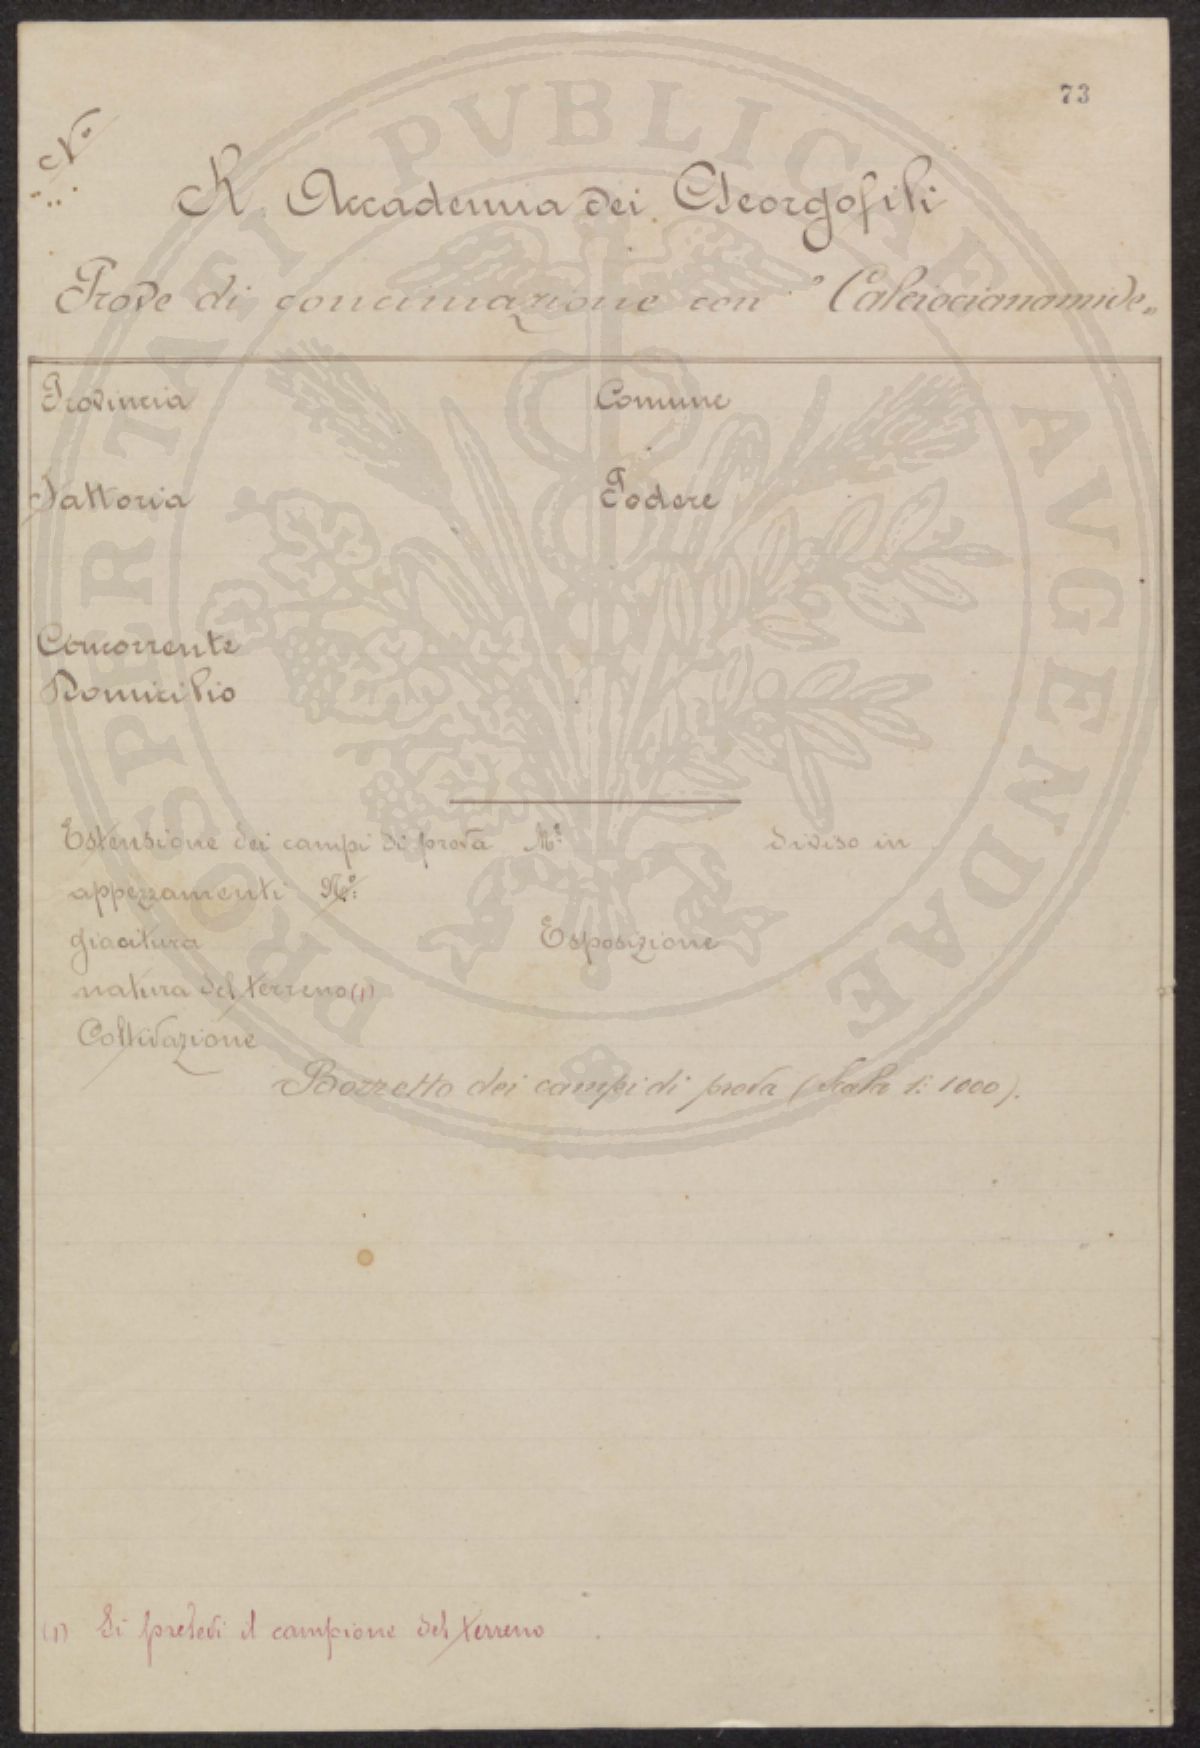 73
No
R. Accademia dei Georgofili
Prove di concimazione con "Calciocianamide„
Provincia Comune
Fattoria Podere
Concorrente
Domicilio
Estensione dei campi di prova M.² diviso in
appezzamenti No:
giacitura Esposizione
natura del terreno (1)
Coltivazione
Bozzetto dei campi di prova (Scala 1: 1000).
(1) Si prelevi il campione del terreno
PROSPERITATI PVBLICAE AVGENDAE